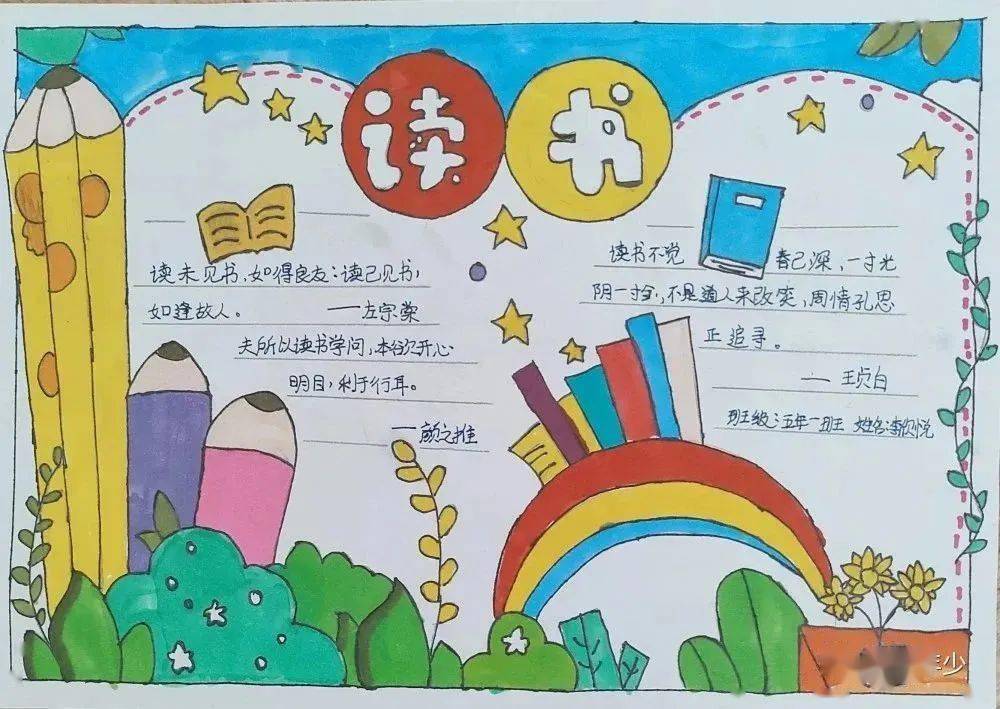 读书
读未见书，如得良友：读己见书，
如逢故人。 ——左宗棠
夫所以读书学问，本欲开心
明目，利于行耳。
——颜之推
读书不觉春已深，一寸光
阴一寸金，不是道人来改笑，周情孔思
正追寻。
——王贞白
班级：五年一班 姓名：悦
沙